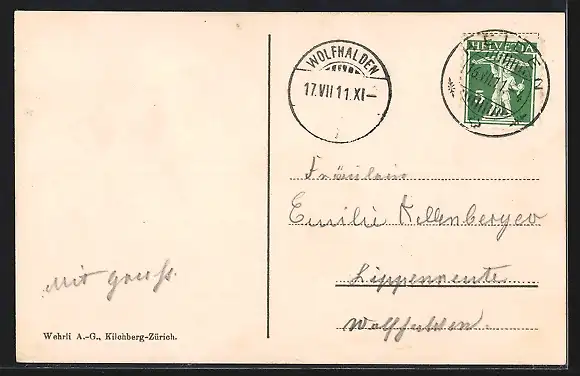 WOLFHALDEN
17.VII 11.XI–
HELVETIA
Fräulein
Emilie Kellenberger
Lippenreute
Wolfhalden.
Mit gruss.
Wehrli A.-G., Kilchberg-Zürich.